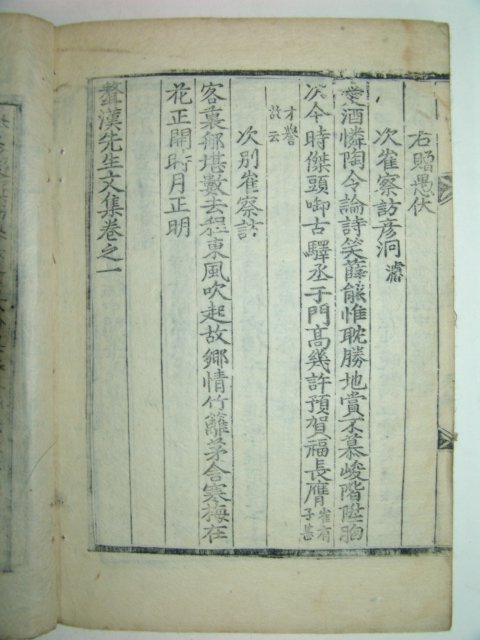 右贈愚伏
次崔察訪彦洞濬
愛酒憐陶令論詩笑薛能惟耽勝地賞不慕峻階陞胸
次今時傑頭啣古驛丞于門高幾許預賀福長膺崔有子善
才譽故云
次別崔察訪
客裏那堪數去程東風吹起故鄕情竹籬茅舍寒梅在
花正開時月正明
鰲漢先生文集卷之一